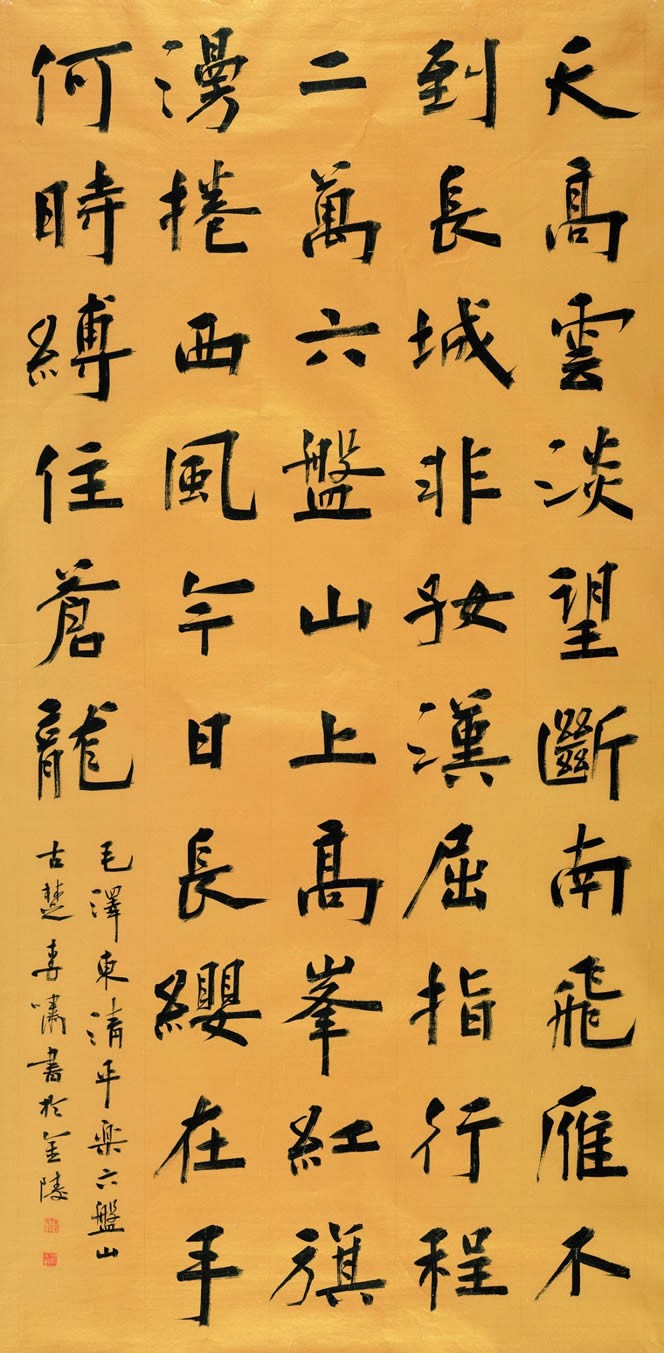 天高雲淡望斷南飛雁不
到長城非好漢屈指行程
二萬六盤山上高峯紅旗
漫捲西風今日長纓在手
何時縛住蒼龍
毛澤東清平樂六盤山
古楚李嘯書於金陵